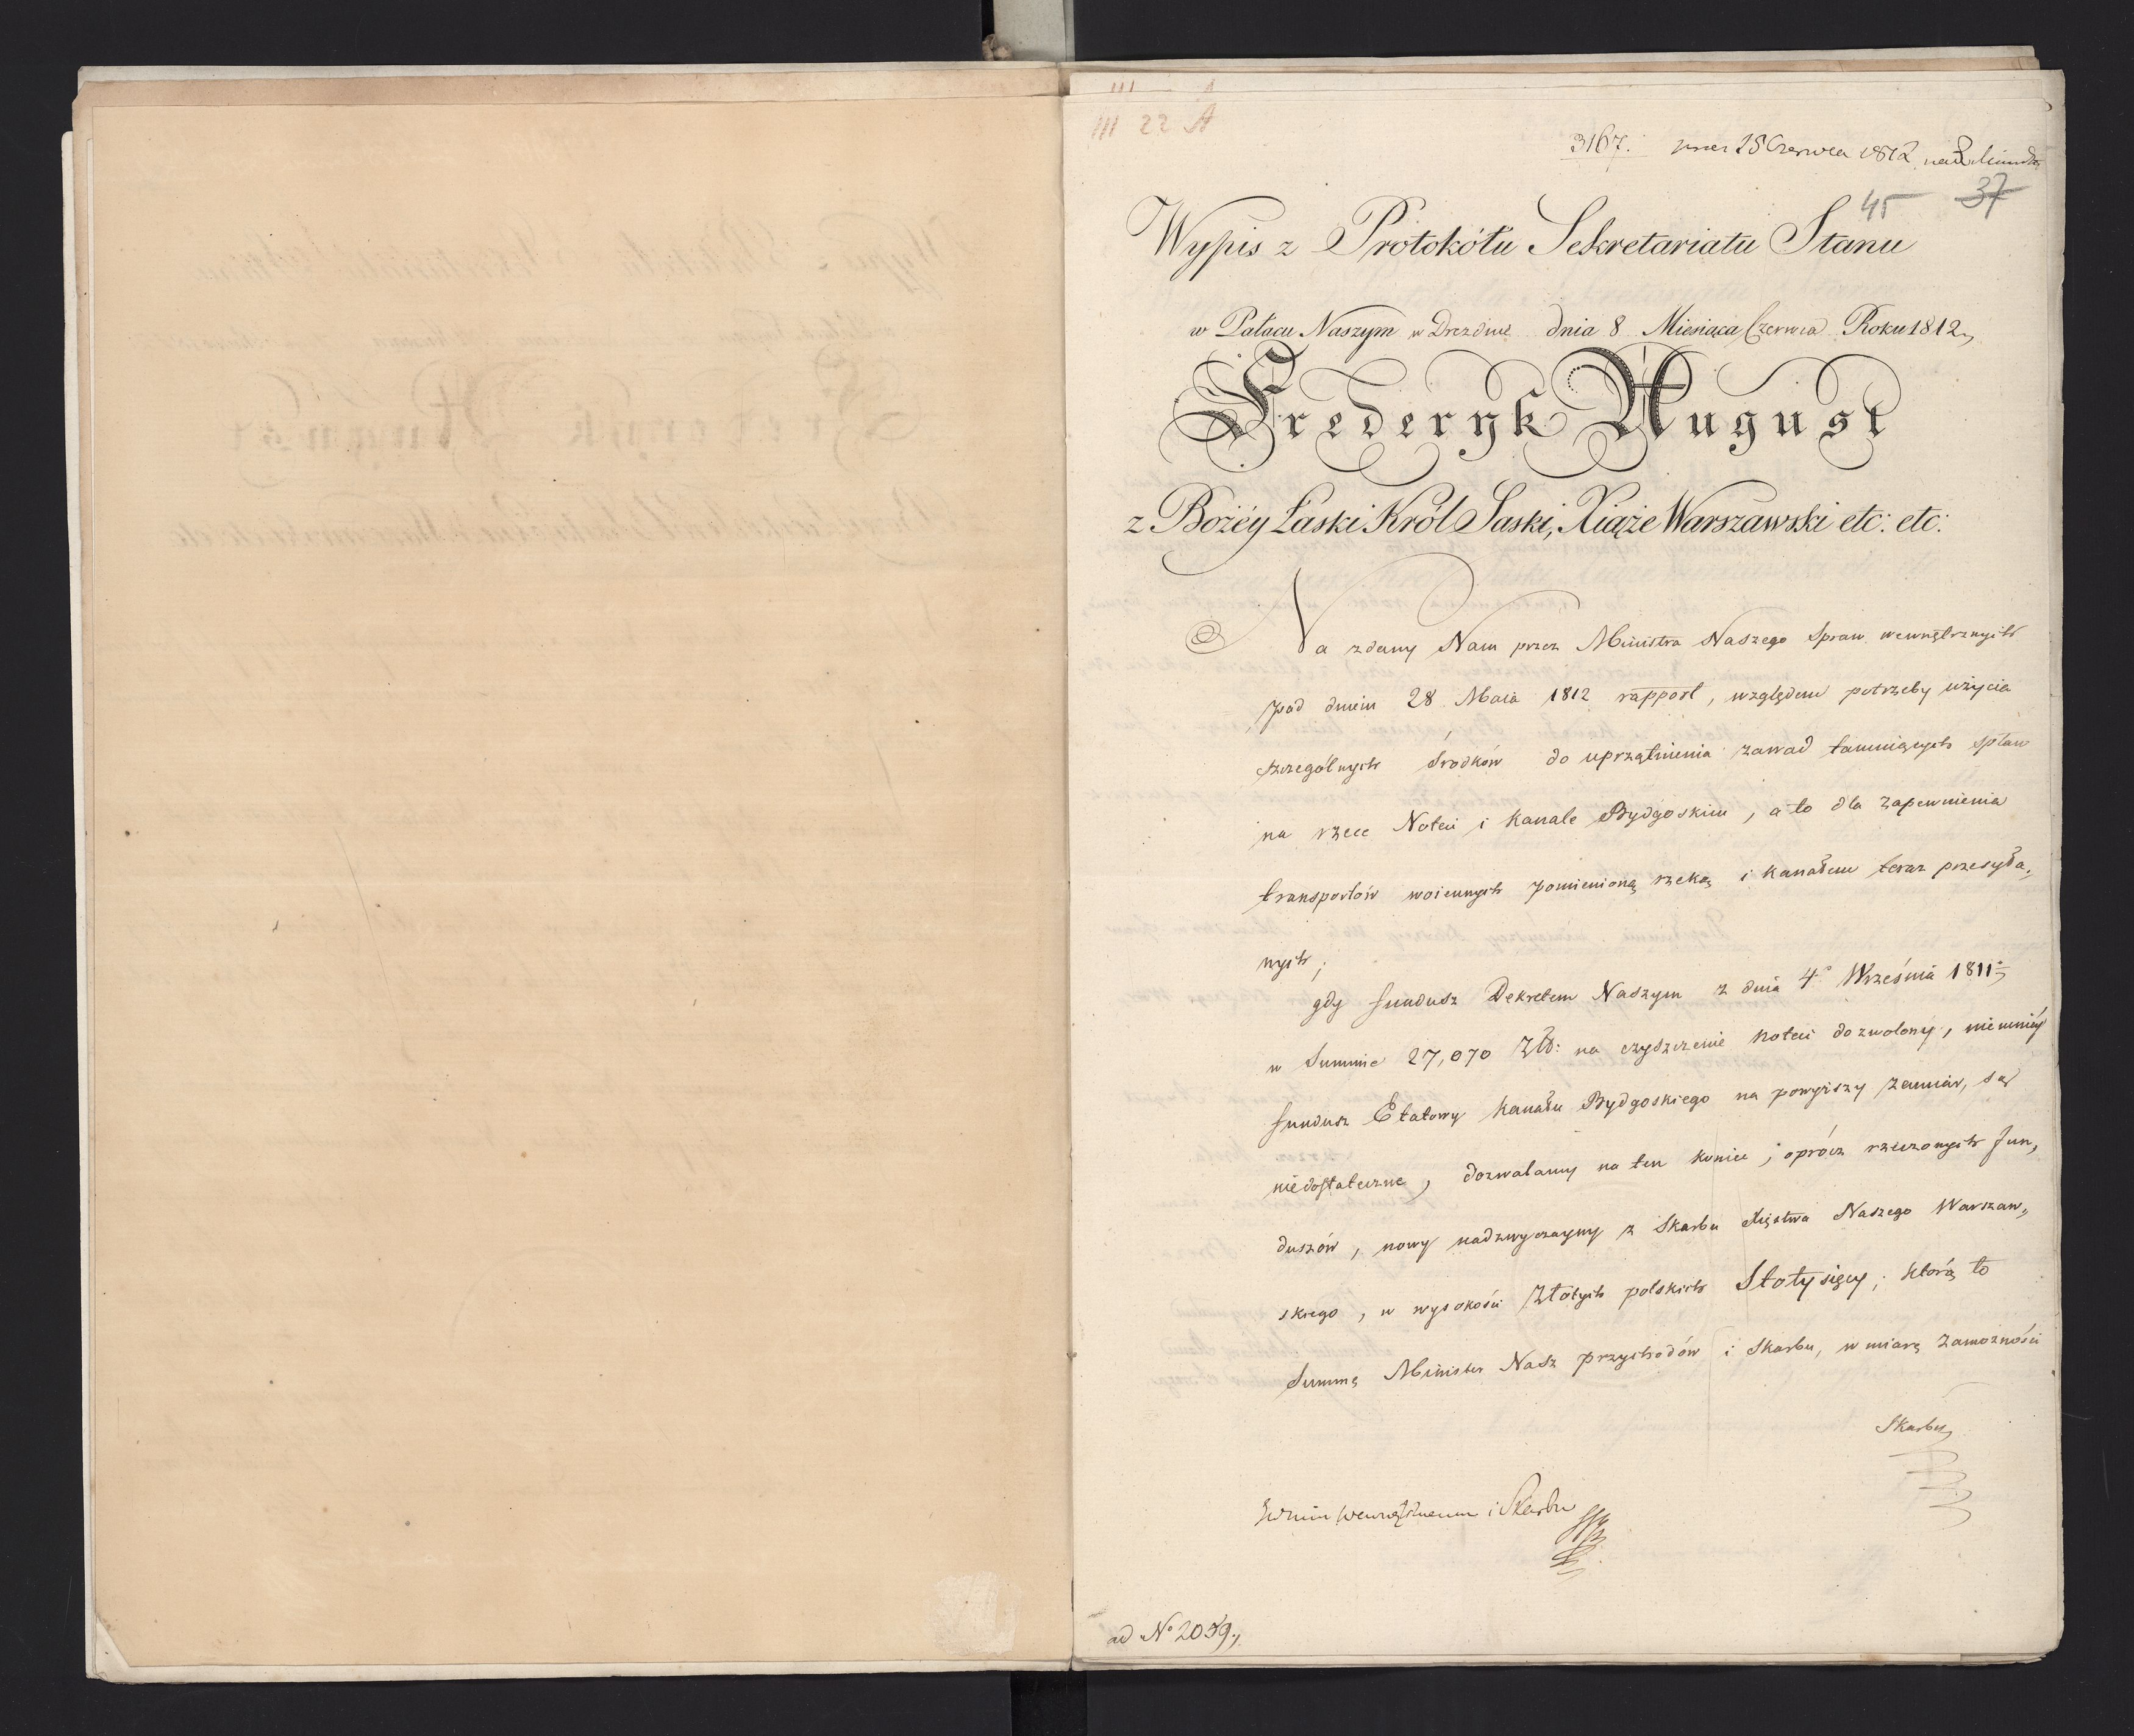 III 22 A
3167. 25 Czerwca 1812
45 37
Wypis z Protokółu Sekretariatu Stanu
w Pałacu Naszym w Dreznie dnia 8 Miesiąca Czerwca Roku 1812,,
Frederyk August
z Bożéy Łaski Król Saski, Xiąże Warszawski etc: etc:
Na zdany Nam przez Ministra Naszego Spraw wewnętrznych
pod dniem 28 Maia 1812 rapport, względem potrzeby użycia
szczególnych środków do uprzątnienia zawad tamuiących spław
na rzece Noteci i Kanale Bydgoskim, a to dla zapewnienia
transportów woiennych pomienioną rzeką i kanałem teraz przesyła,,
nych;
gdy fundusz Dekretem Naszym z dnia 4º Września 1811
w Summie 27,070 Złt: na czyszczenie Noteci dozwolony, niemniéy
fundusz Etatowy Kanału Bydgoskiego na powyższy zamiar, są
niedostateczne, dozwalamy na ten koniec, oprócz rzeczonych Fun,,
duszów, nowy nadzwyczayny z Skarbu Xięstwa Naszego Warszaw,,
skiego, w wysokości Złotych polskich Stotysięcy; którą to
Summę Minister Nasz przychodów i Skarbu, w miarę zamożności
Skarbu
i Skarbu
ad Nº 2039.,